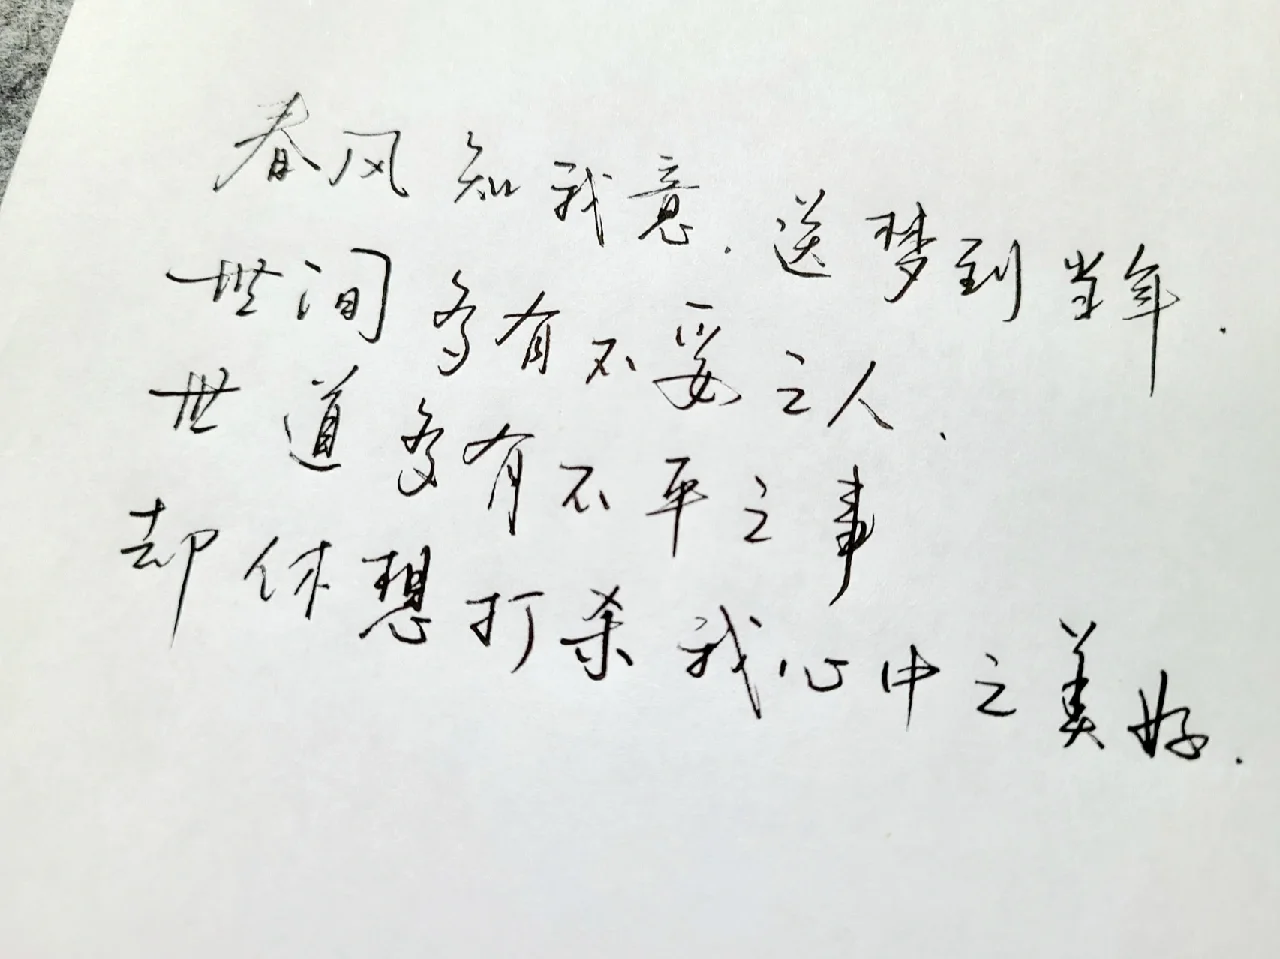 春风知我意.送梦到当年.
世间多有不妥之人.
世道多有不平之事
却休想打杀我心中之美好.